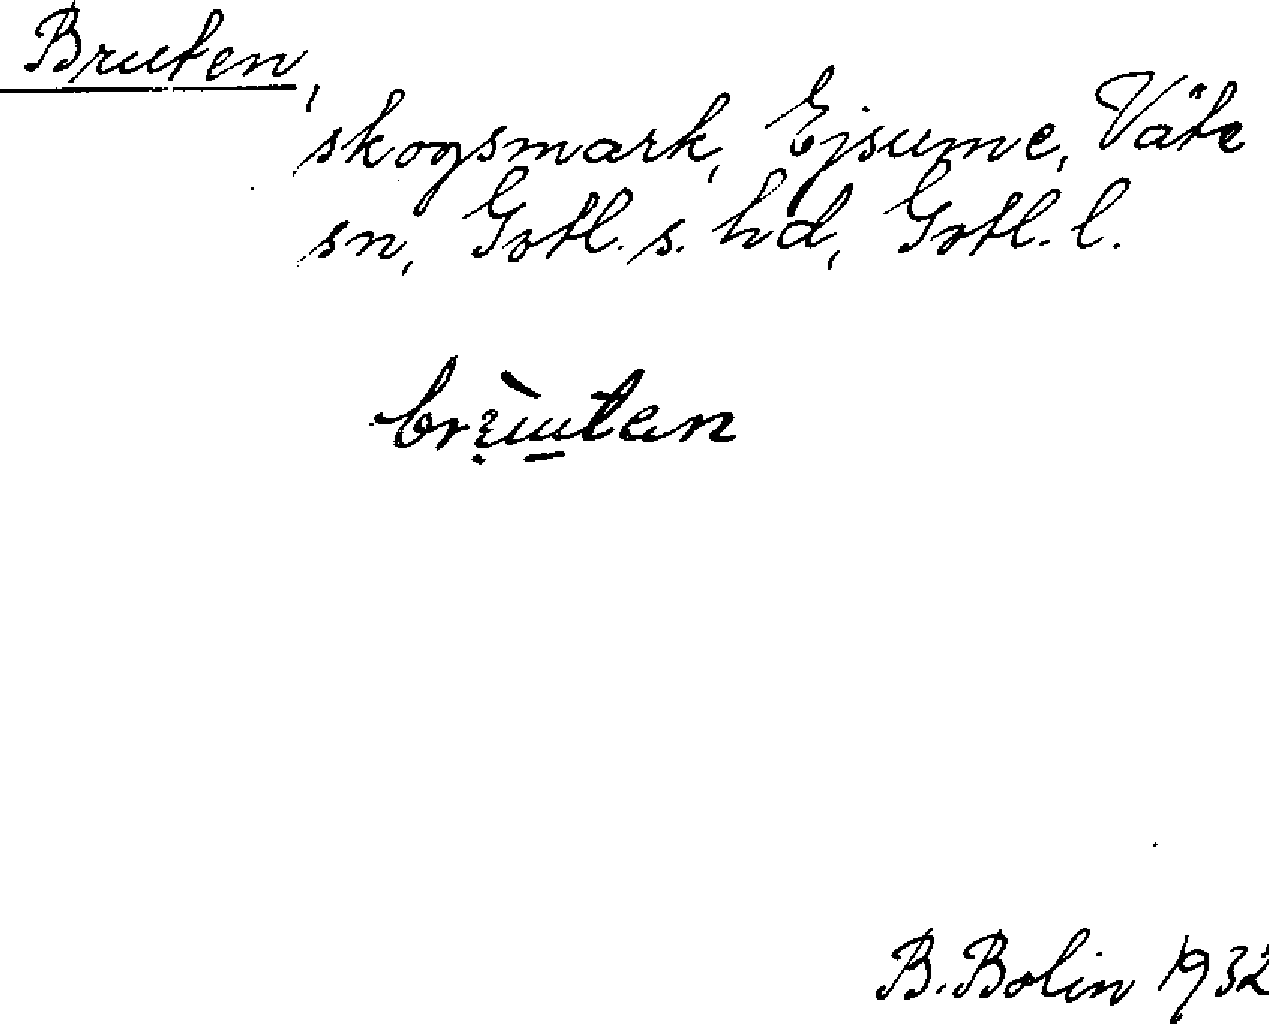 Bruten,
skogsmark, Ejsume, Väte
sn, Gotl. s. hd, Gotl. l.
B. Bolin 1932